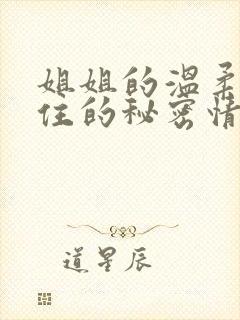 姐姐的温柔
住的秘密情
道星辰